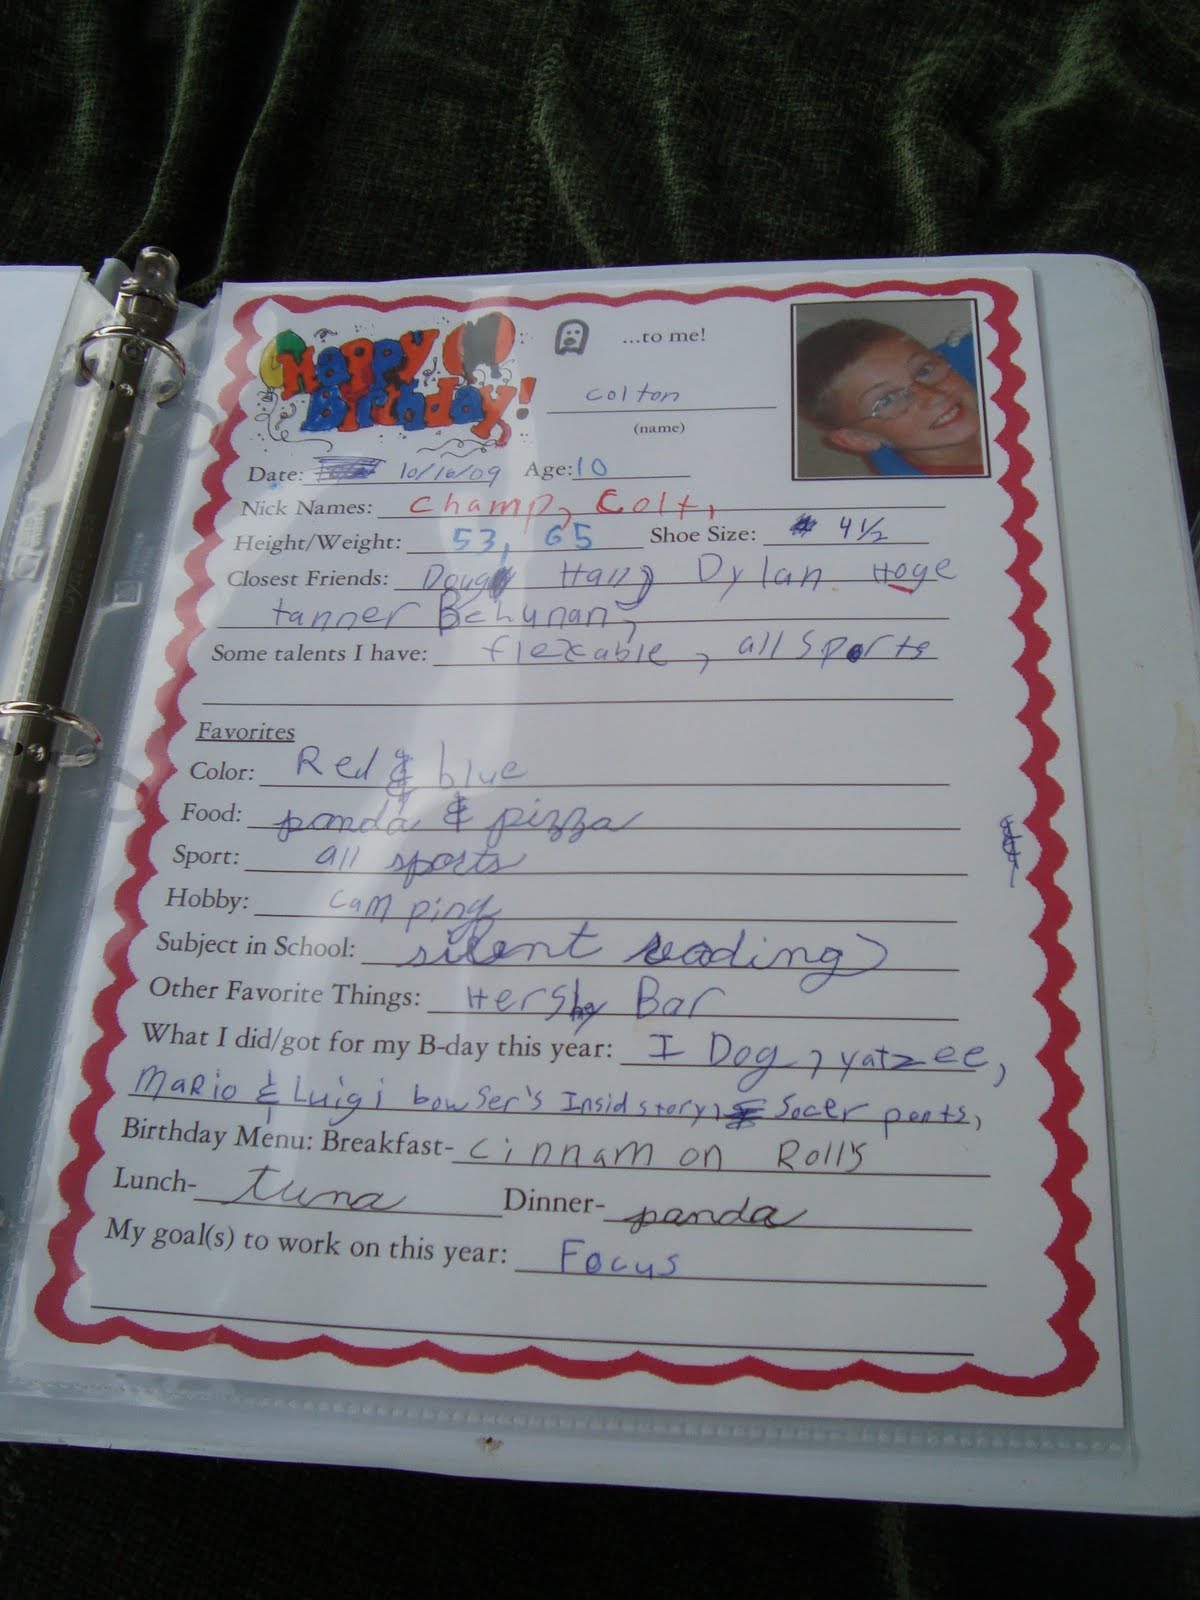 Happy
Birthday!
...to me!
colton
(name)
Date: 10/16/09 Age: 10
Nick Names: Champ, Colt,
Height/Weight: 53, 65 Shoe Size: 4 1/2
Closest Friends: Doug Hall, Dylan Hoge
tanner Behunan,
Some talents I have: flexable, all sports
Favorites
Color: Red & blue
Food: panda & pizza
Sport: all sports
Hobby: camping
Subject in School: silent reading
Other Favorite Things: Hershy Bar
What I did/got for my B-day this year: I Dog, yatzee,
Mario & Luigi bowser's Insid story, Socer pants,
Birthday Menu: Breakfast- cinnamon Rolls
Lunch- tuna Dinner- panda
My goal(s) to work on this year: Focus